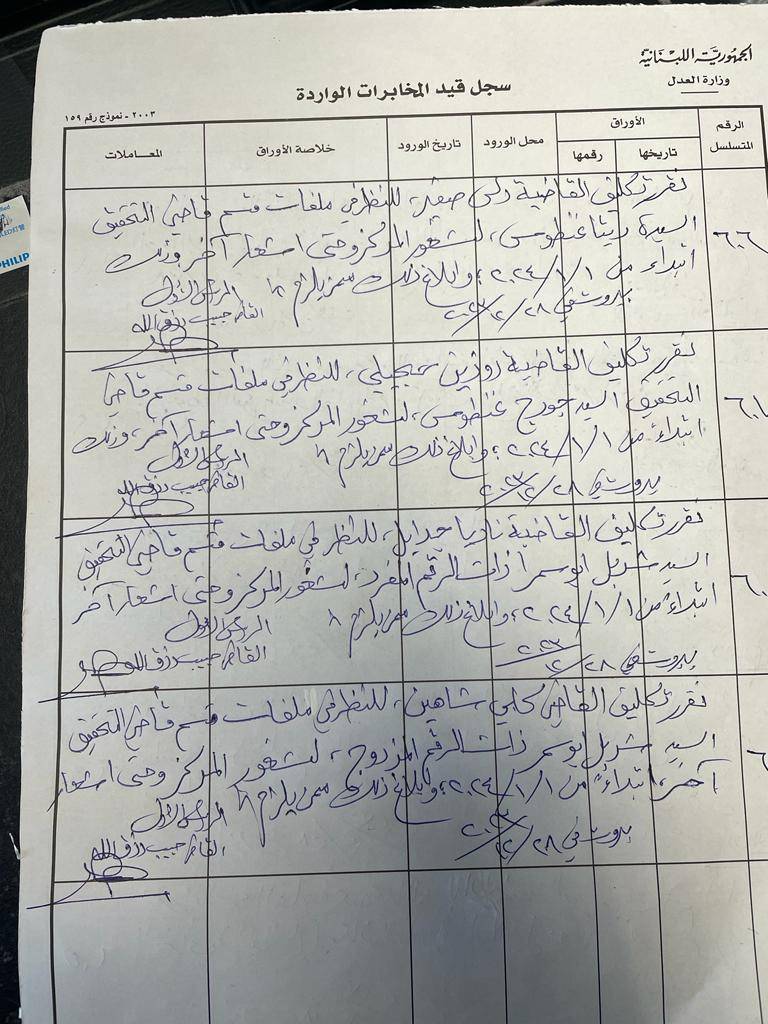 الجمهورية اللبنانية
وزارة العدل
سجل قيد المخابرات الواردة
٢٠٠٣ - نموذج رقم ١٥٩
الرقم المتسلسل
الأوراق
تاريخها
رقمها
محل الورود
تاريخ الورود
خلاصة الأوراق
المعاملات
نقرر تكليف القاضية صغير، للنظر في ملفات قسم قاضي التحقيق
السيدة رينا غنطوس، لشغور المركز وحتى اشعار آخر وذلك
ابتداء من ٢٠٢٤/١/١ وابلاغ ذلك ممن يلزم
بيروت في ٢٠٢٣/١٢/٢٨
الرئيس الأول
القاضي حبيب رزق الله
نقرر تكليف القاضية روزين، للنظر في ملفات قسم قاضي
التحقيق السيد جورج غنطوس، لشغور المركز وحتى اشعار آخر، وذلك
ابتداء من ٢٠٢٤/١/١، وابلاغ ذلك ممن يلزم
الرئيس الأول
بيروت في ٢٠٢٣/١٢/٢٨
القاضي حبيب رزق الله
نقرر تكليف القاضية ناديا جدايل، للنظر في ملفات قسم قاضي التحقيق
السيد شربل ابو سمرا ذات الرقم المفرد، لشغور المركز وحتى اشعار آخر
ابتداء من ٢٠٢٤/١/١، وابلاغ ذلك ممن يلزم
الرئيس الأول
بيروت في ٢٠٢٣/١٢/٢٨
القاضي حبيب رزق الله
نقرر تكليف القاضي شاهين، للنظر في ملفات قسم قاضي التحقيق
السيد شربل ابو سمرا ذات الرقم المزدوج، لشغور المركز وحتى اشعار
آخر، ابتداء من ٢٠٢٤/١/١، وابلاغ ذلك ممن يلزم
الرئيس الأول
بيروت في ٢٠٢٣/١٢/٢٨
القاضي حبيب رزق الله
PHILIP